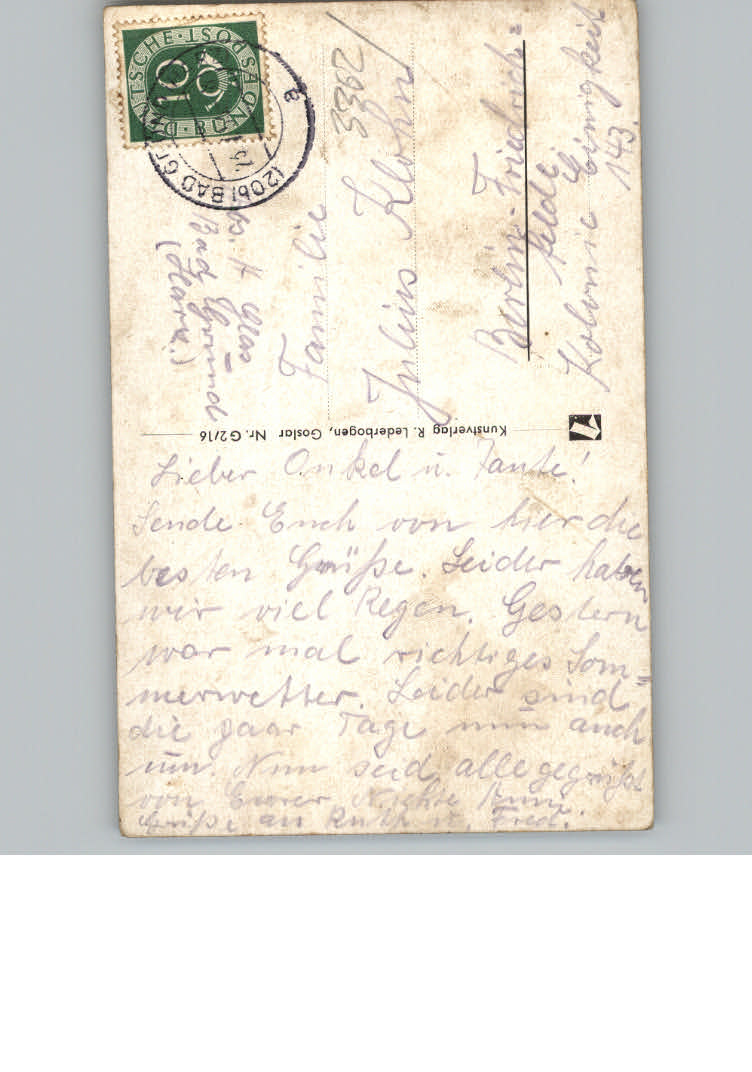 DEUTSCHE · BUNDESPOST
10
(20b) BAD GR
a
3392
Abs. H Glas
Bad Grund
(Harz.)
Familie
Julius Klohn
Berlin-Friedrichs=
felde
Kolonie Einigkeit
143.
Kunstverlag R. Lederbogen, Goslar Nr. G2/16
Lieber Onkel u. Tante!
Sende Euch von hier die
besten Grüße. Leider haben
wir viel Regen. Gestern
war mal richtiges Som=
merwetter. Leider sind
die paar Tage nun auch
um. Nun seid alle gegrüßt
von Eurer Nichte
Grüße an Ruth u. Fred.